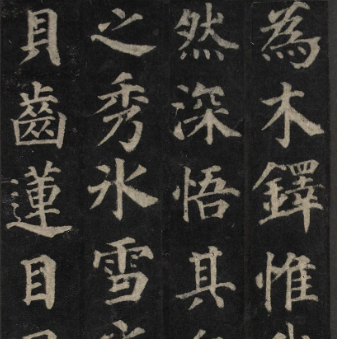 為木鐸惟
然深悟其
之秀氷雪
貝齒蓮目